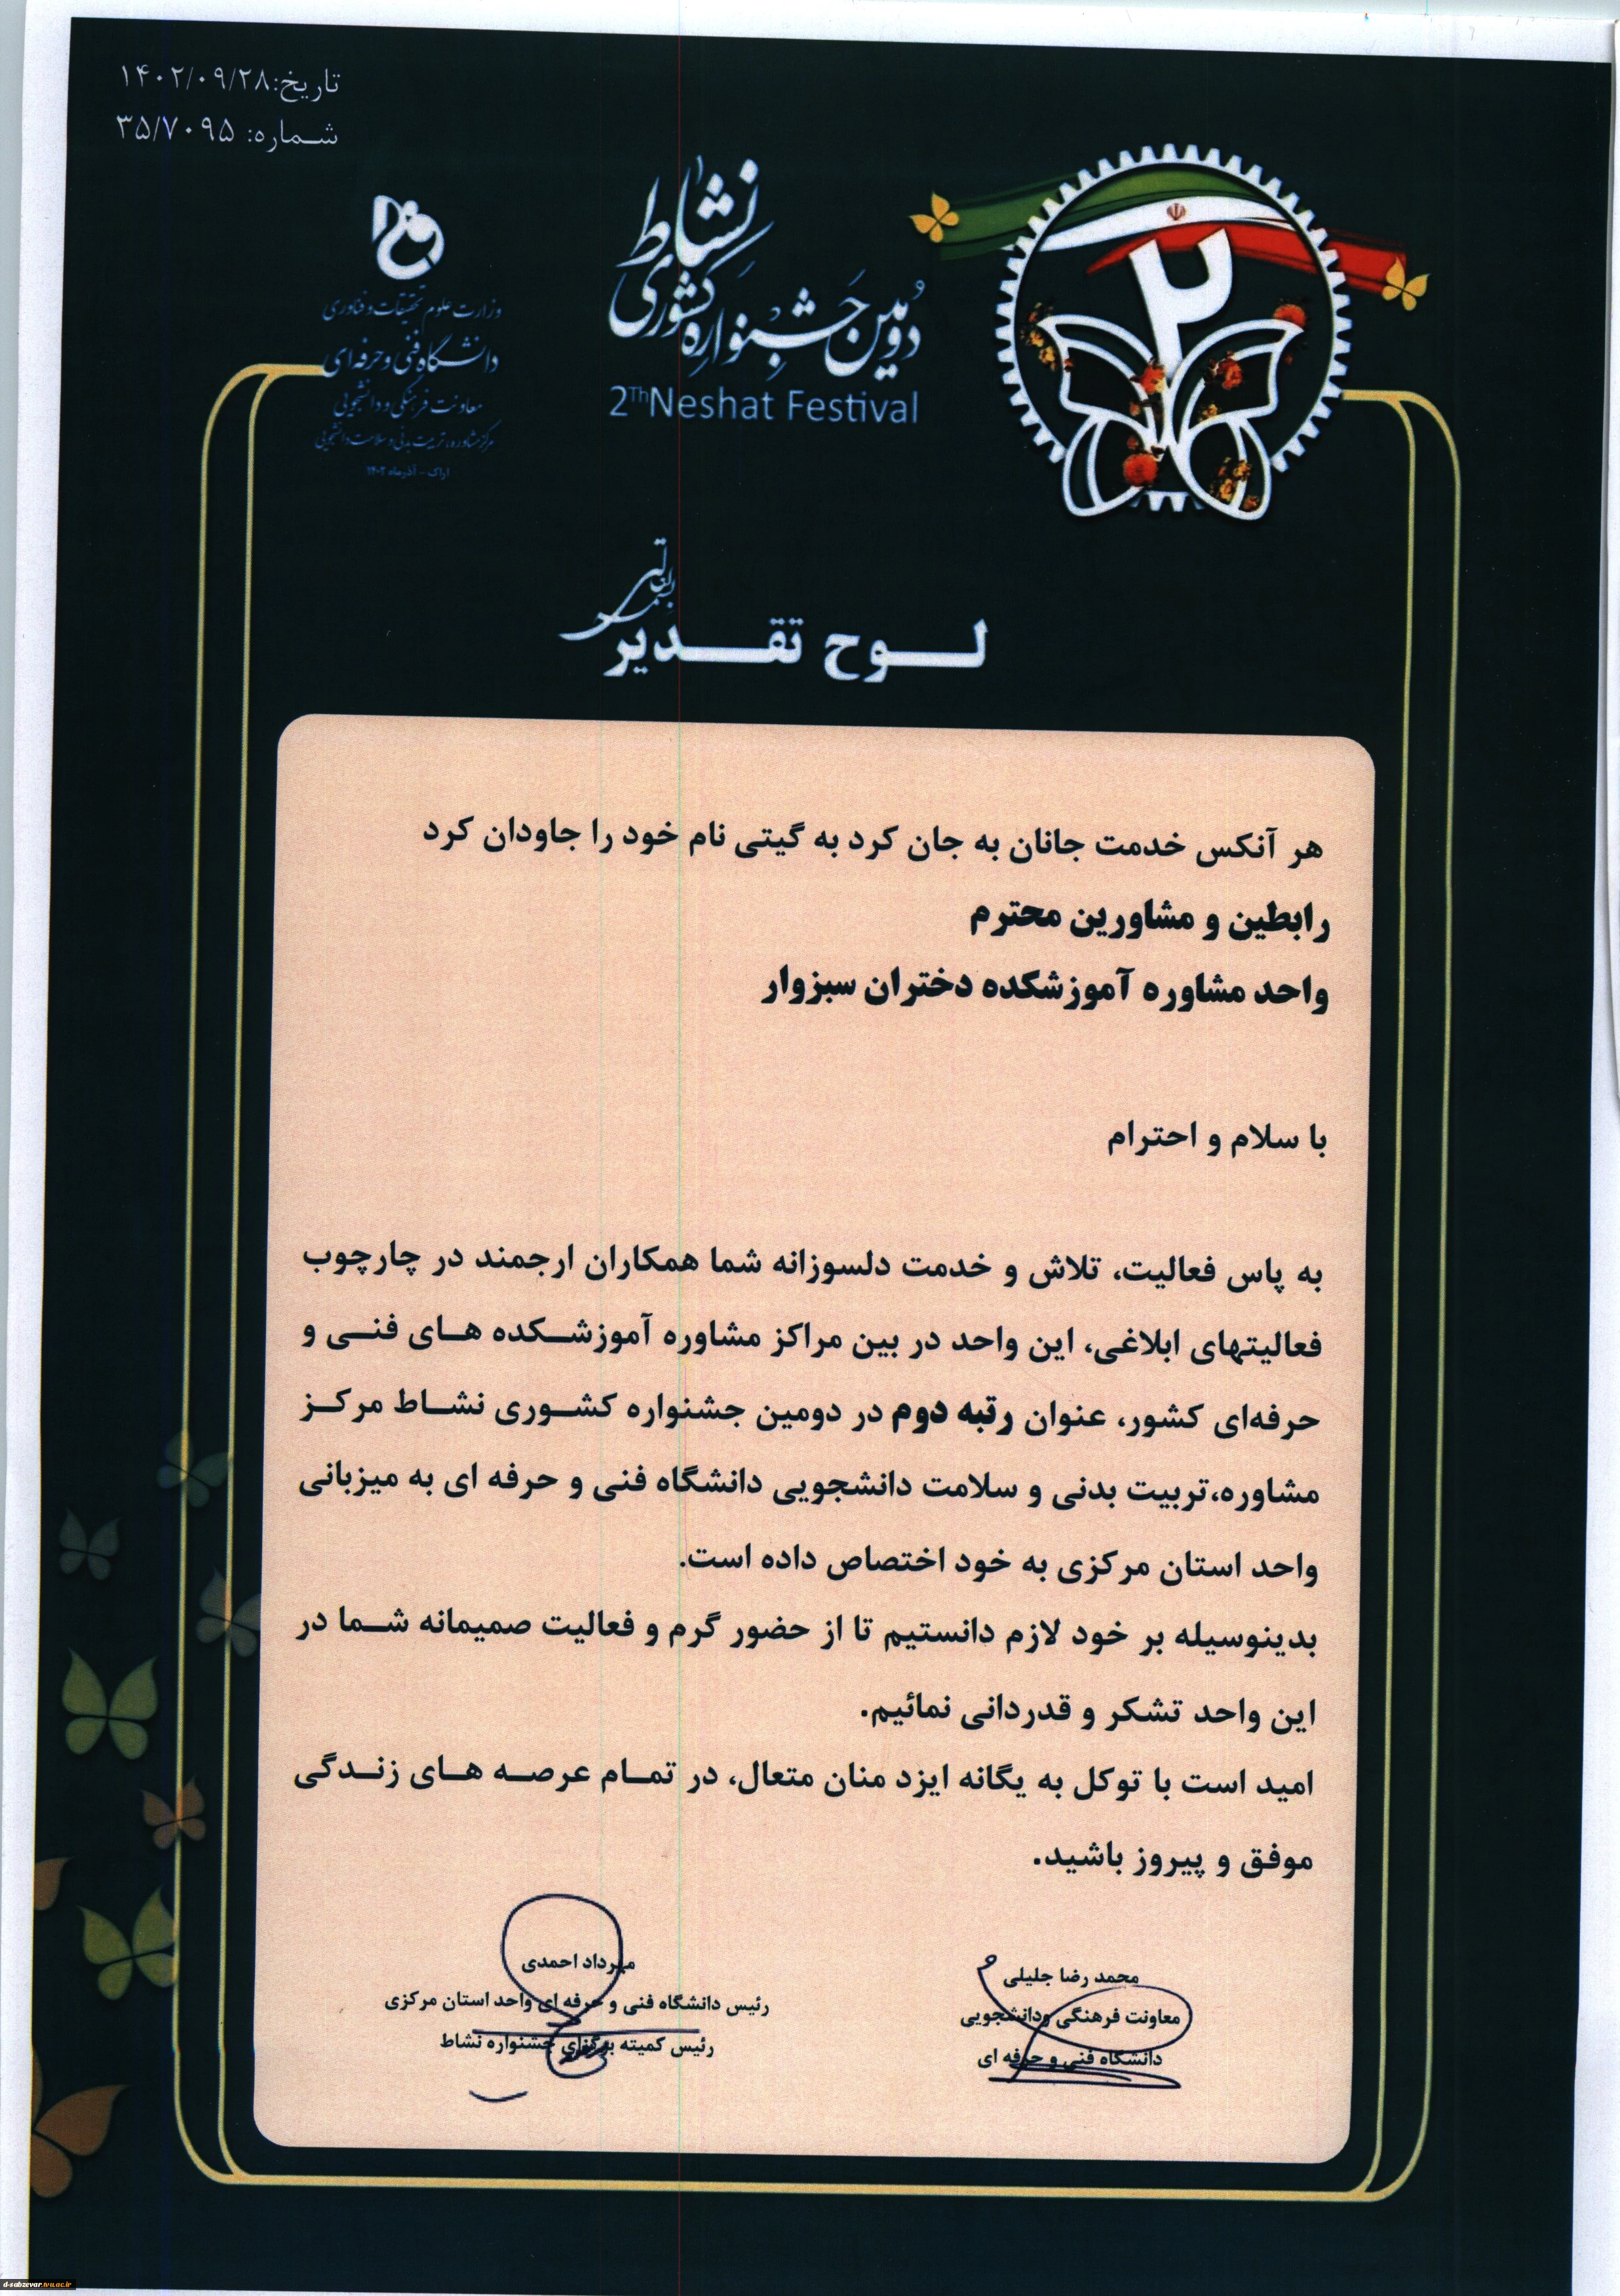 تاریخ:۱۴۰۲/۰۹/۲۸
شماره: ۳۵/۷۰۹۵
دومین جشنواره کشوری نشاط
2ThNeshat Festival
۲
وزارت علوم تحقیقات و فناوری
دانشگاه فنی و حرفه‌ای
معاونت فرهنگی و دانشجویی
مرکز مشاوره، تربیت بدنی و سلامت دانشجویی
اراک - آذرماه ۱۴۰۲
بسمه تعالی
لوح تقدیر
هر آنکس خدمت جانان به جان کرد به گیتی نام خود را جاودان کرد
رابطین و مشاورین محترم
واحد مشاوره آموزشکده دختران سبزوار
با سلام و احترام
به پاس فعالیت، تلاش و خدمت دلسوزانه شما همکاران ارجمند در چارچوب
فعالیتهای ابلاغی، این واحد در بین مراکز مشاوره آموزشکده های فنی و
حرفه‌ای کشور، عنوان رتبه دوم در دومین جشنواره کشوری نشاط مرکز
مشاوره،تربیت بدنی و سلامت دانشجویی دانشگاه فنی و حرفه ای به میزبانی
واحد استان مرکزی به خود اختصاص داده است.
بدینوسیله بر خود لازم دانستیم تا از حضور گرم و فعالیت صمیمانه شما در
این واحد تشکر و قدردانی نمائیم.
امید است با توکل به یگانه ایزد منان متعال، در تمام عرصه های زندگی
موفق و پیروز باشید.
محمد رضا جلیلی
معاونت فرهنگی ودانشجویی
دانشگاه فنی و حرفه ای
مهرداد احمدی
رئیس دانشگاه فنی و حرفه ای واحد استان مرکزی
رئیس کمیته برگزای جشنواره نشاط
d-sabzevar.tvu.ac.ir